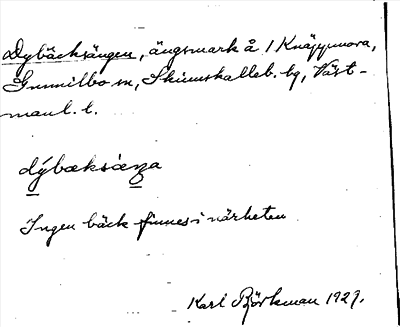 Dybäcksängen, ängsmark å 1 Knäppmora,
Gunnilbo sn, Skinnskatteb. bg, Väst-
manl. l.
dýbæksæŋa
Ingen bäck finnes i närheten
Karl Björkman 1927.